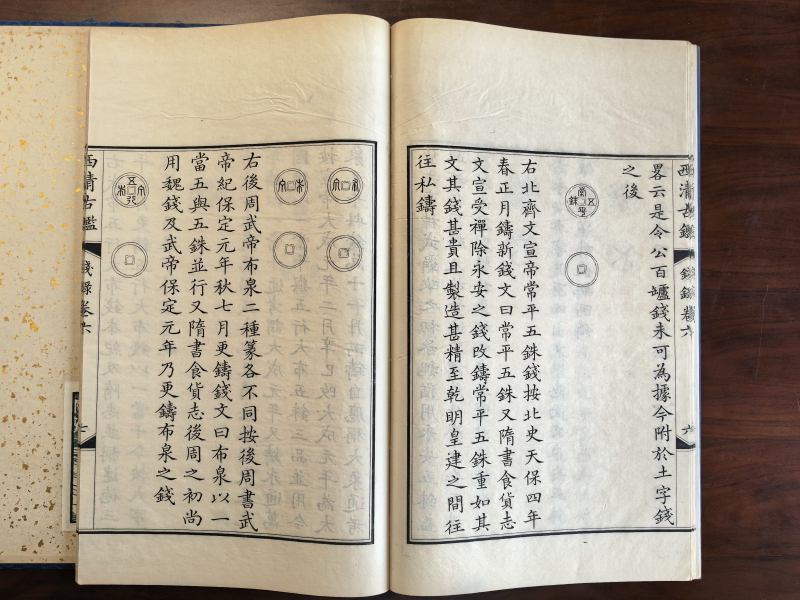 西清古鑑 錢錄卷六 六
畧云是令公百壚錢未可為據今附於土字錢
之後
常平五銖
右北齊文宣帝常平五銖錢按北史天保四年
春正月鑄新錢文曰常平五銖又隋書食貨志
文宣受禪除永安之錢改鑄常平五銖重如其
文其錢甚貴且製造甚精至乾明皇建之間往
往私鑄
布泉
布泉
右後周武帝布泉二種篆各不同按後周書武
帝紀保定元年秋七月更鑄錢文曰布泉以一
當五與五銖並行又隋書食貨志後周之初尚
用魏錢及武帝保定元年乃更鑄布泉之錢
五行大布
西清古鑑 錢錄卷六 七